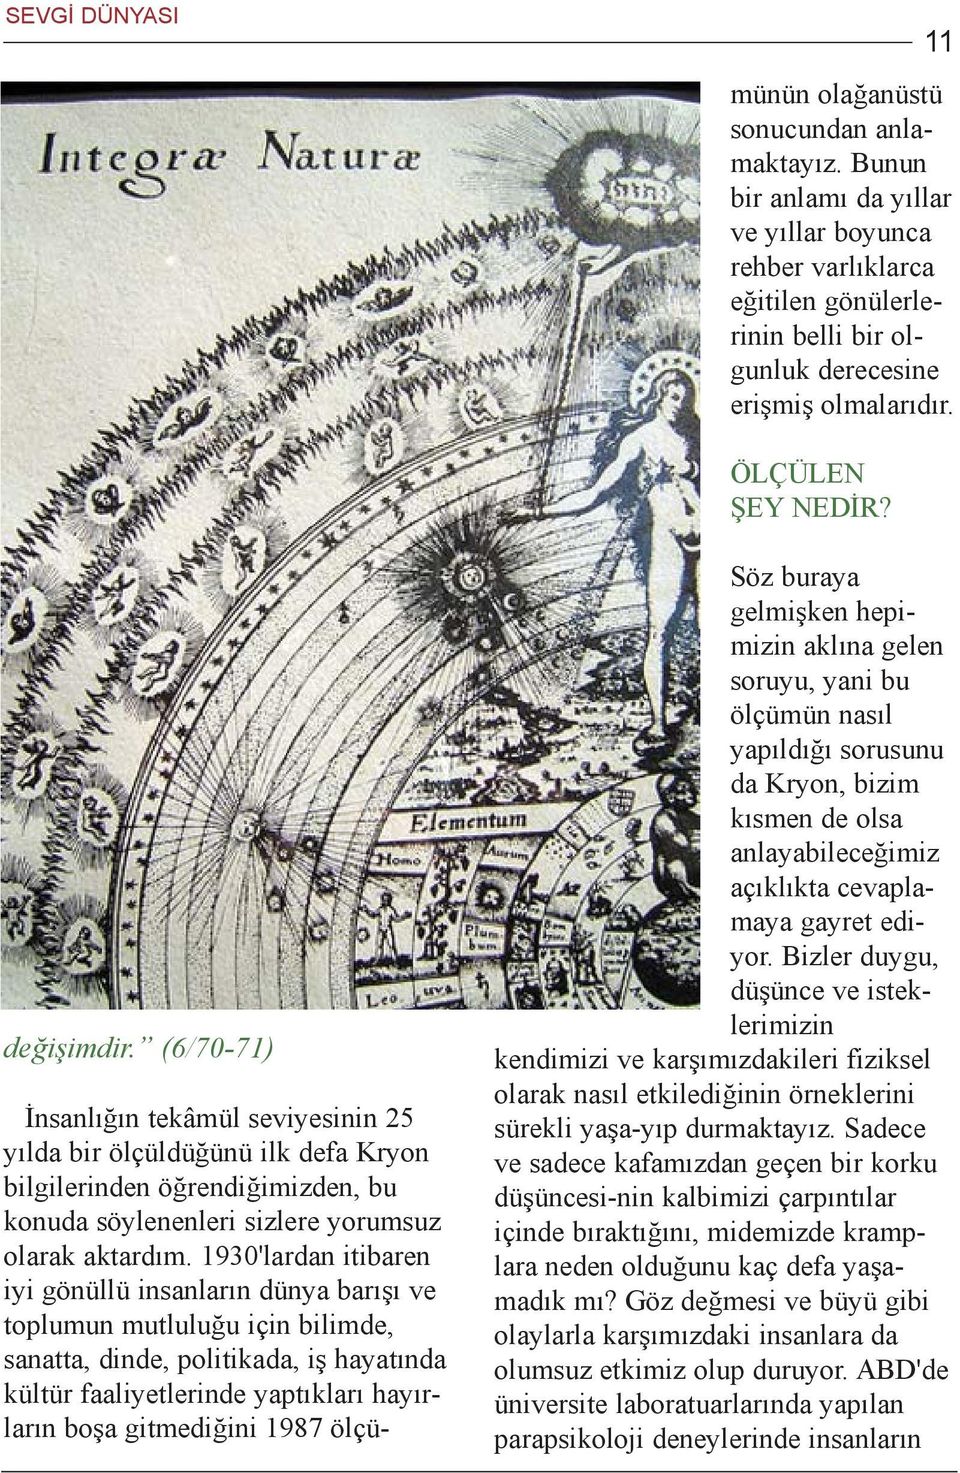 SEVGİ DÜNYASI
11
Integræ Naturæ
Elementum
Homo
Aurum
Plum
bum
Leo
uva
değişimdir.” (6/70-71)
İnsanlığın tekâmül seviyesinin 25
yılda bir ölçüldüğünü ilk defa Kryon
bilgilerinden öğrendiğimizden, bu
konuda söylenenleri sizlere yorumsuz
olarak aktardım. 1930'lardan itibaren
iyi gönüllü insanların dünya barışı ve
toplumun mutluluğu için bilimde,
sanatta, dinde, politikada, iş hayatında
kültür faaliyetlerinde yaptıkları hayır-
ların boşa gitmediğini 1987 ölçü-
münün olağanüstü
sonucundan anla-
maktayız. Bunun
bir anlamı da yıllar
ve yıllar boyunca
rehber varlıklarca
eğitilen gönülerle-
rinin belli bir ol-
gunluk derecesine
erişmiş olmalarıdır.
ÖLÇÜLEN
ŞEY NEDİR?
Söz buraya
gelmişken hepi-
mizin aklına gelen
soruyu, yani bu
ölçümün nasıl
yapıldığı sorusunu
da Kryon, bizim
kısmen de olsa
anlayabileceğimiz
açıklıkta cevapla-
maya gayret edi-
yor. Bizler duygu,
düşünce ve istek-
lerimizin
kendimizi ve karşımızdakileri fiziksel
olarak nasıl etkilediğinin örneklerini
sürekli yaşa-yıp durmaktayız. Sadece
ve sadece kafamızdan geçen bir korku
düşüncesi-nin kalbimizi çarpıntılar
içinde bıraktığını, midemizde kramp-
lara neden olduğunu kaç defa yaşa-
madık mı? Göz değmesi ve büyü gibi
olaylarla karşımızdaki insanlara da
olumsuz etkimiz olup duruyor. ABD'de
üniversite laboratuarlarında yapılan
parapsikoloji deneylerinde insanların